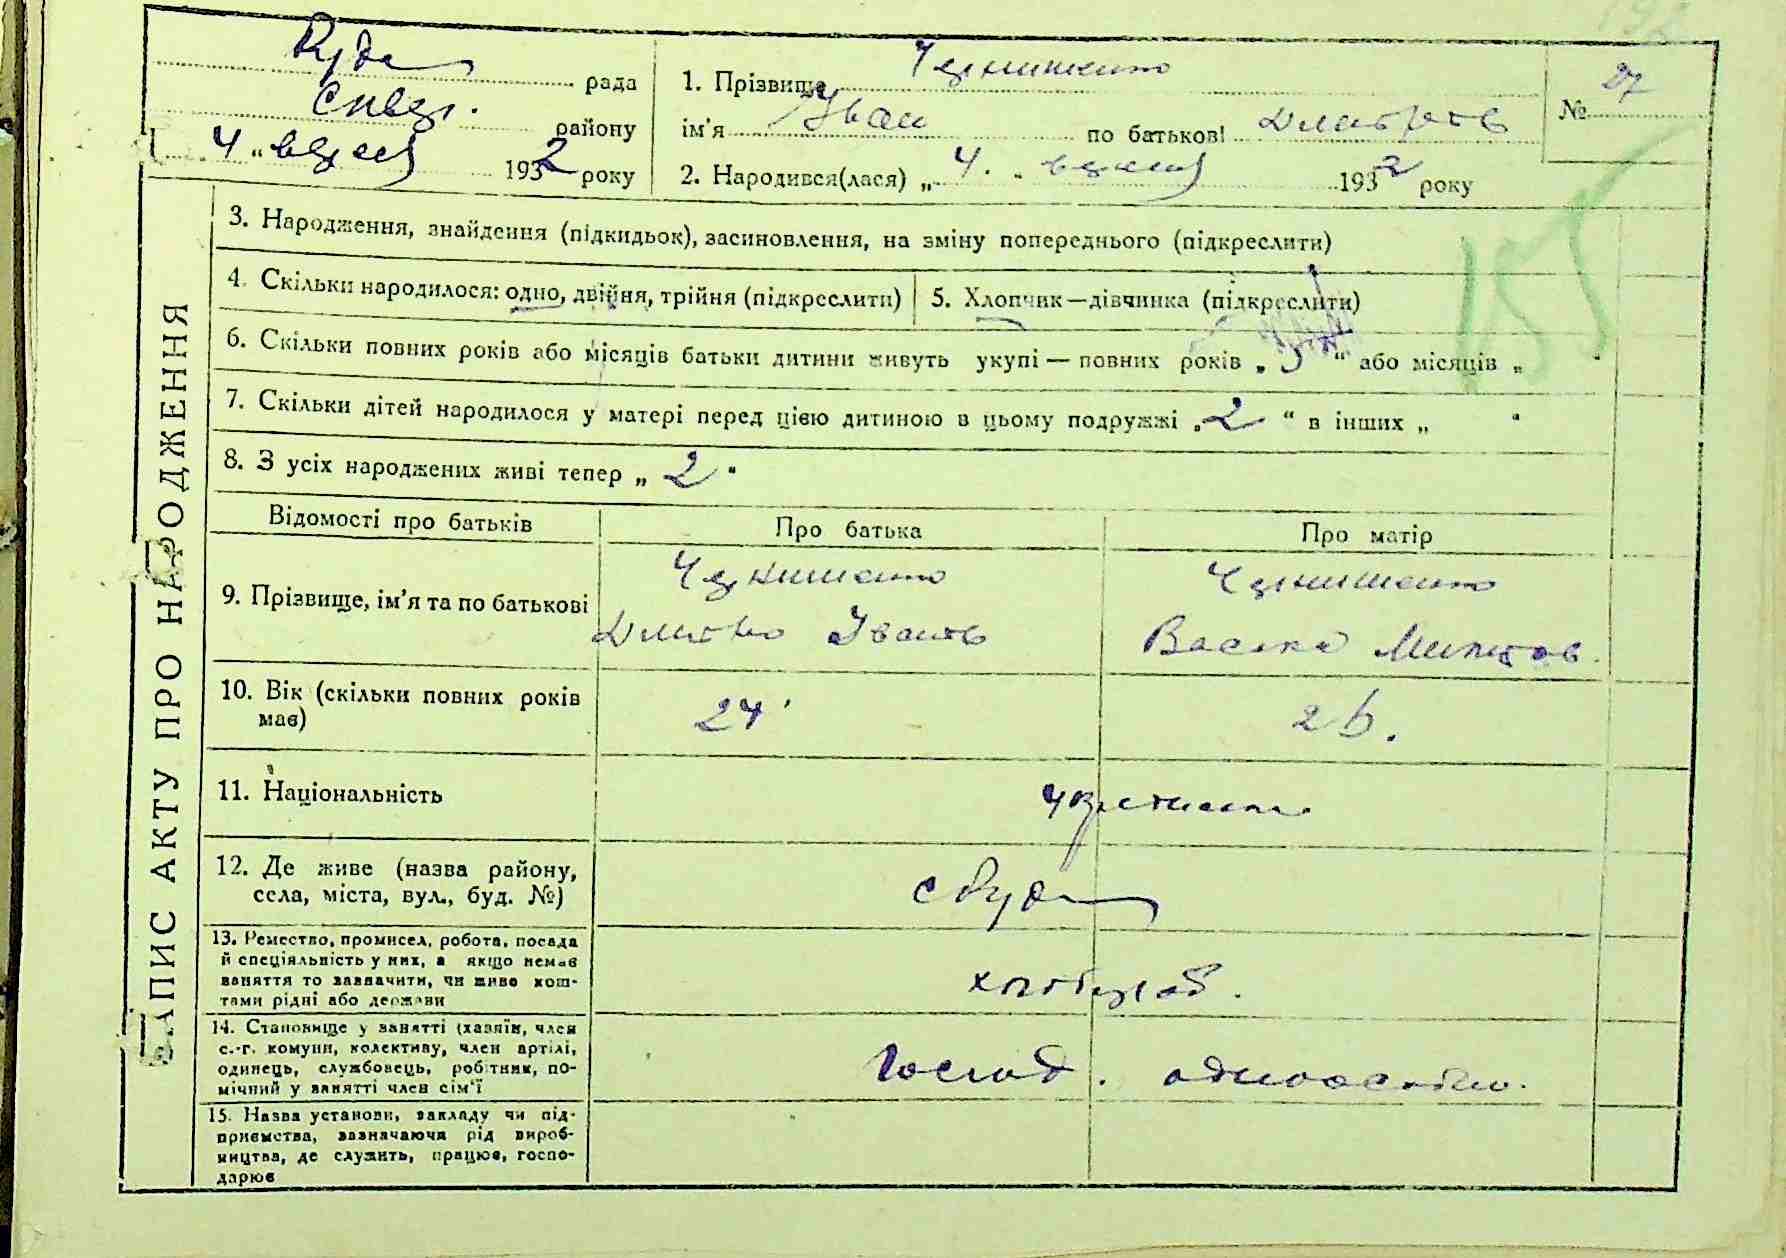 Руда рада
Сквир. району
„ 4 “ вересня 1932 року
1. Прізвище Чернишенко
ім'я Іван по батькові Дмитров
2. Народився(лася) „ 4. “ вересня 1932 року
№ 27
155
3. Народження, знайдення (підкидьок), засиновлення, на зміну попереднього (підкреслити)
4. Скільки народилося: одно, двійня, трійня (підкреслити)
5. Хлопчик—дівчинка (підкреслити)
6. Скільки повних років або місяців батьки дитини живуть укупі — повних років „ 5 “ або місяців „ “
7. Скільки дітей народилося у матері перед цією дитиною в цьому подружжі „ 2 “ в інших „ “
8. З усіх народжених живі тепер „ 2 “
ЗАПИС АКТУ ПРО НАРОДЖЕННЯ
Відомості про батьків
Про батька
Про матір
9. Прізвище, ім'я та по батькові
Чернишенко
Дмитро Іванов
Чернишенко
10. Вік (скільки повних років
має)
24
26.
11. Національність
українці
12. Де живе (назва району,
села, міста, вул., буд. №)
с Руда
13. Ремество, промисел, робота, посада
й спеціяльність у них, а якщо немає
заняття то зазначити, чи живе кош-
тами рідні або держави
хлібороб.
14. Становище у занятті (хазяїн, член
с.-г. комуни, колективу, член артілі,
одинець, службовець, робітник, по-
мічний у занятті член сім'ї
Господ. одноосібно.
15. Назва установи, закладу чи під-
приємства, зазначаючи рід вироб-
ництва, де служить, працює, госпо-
дарює